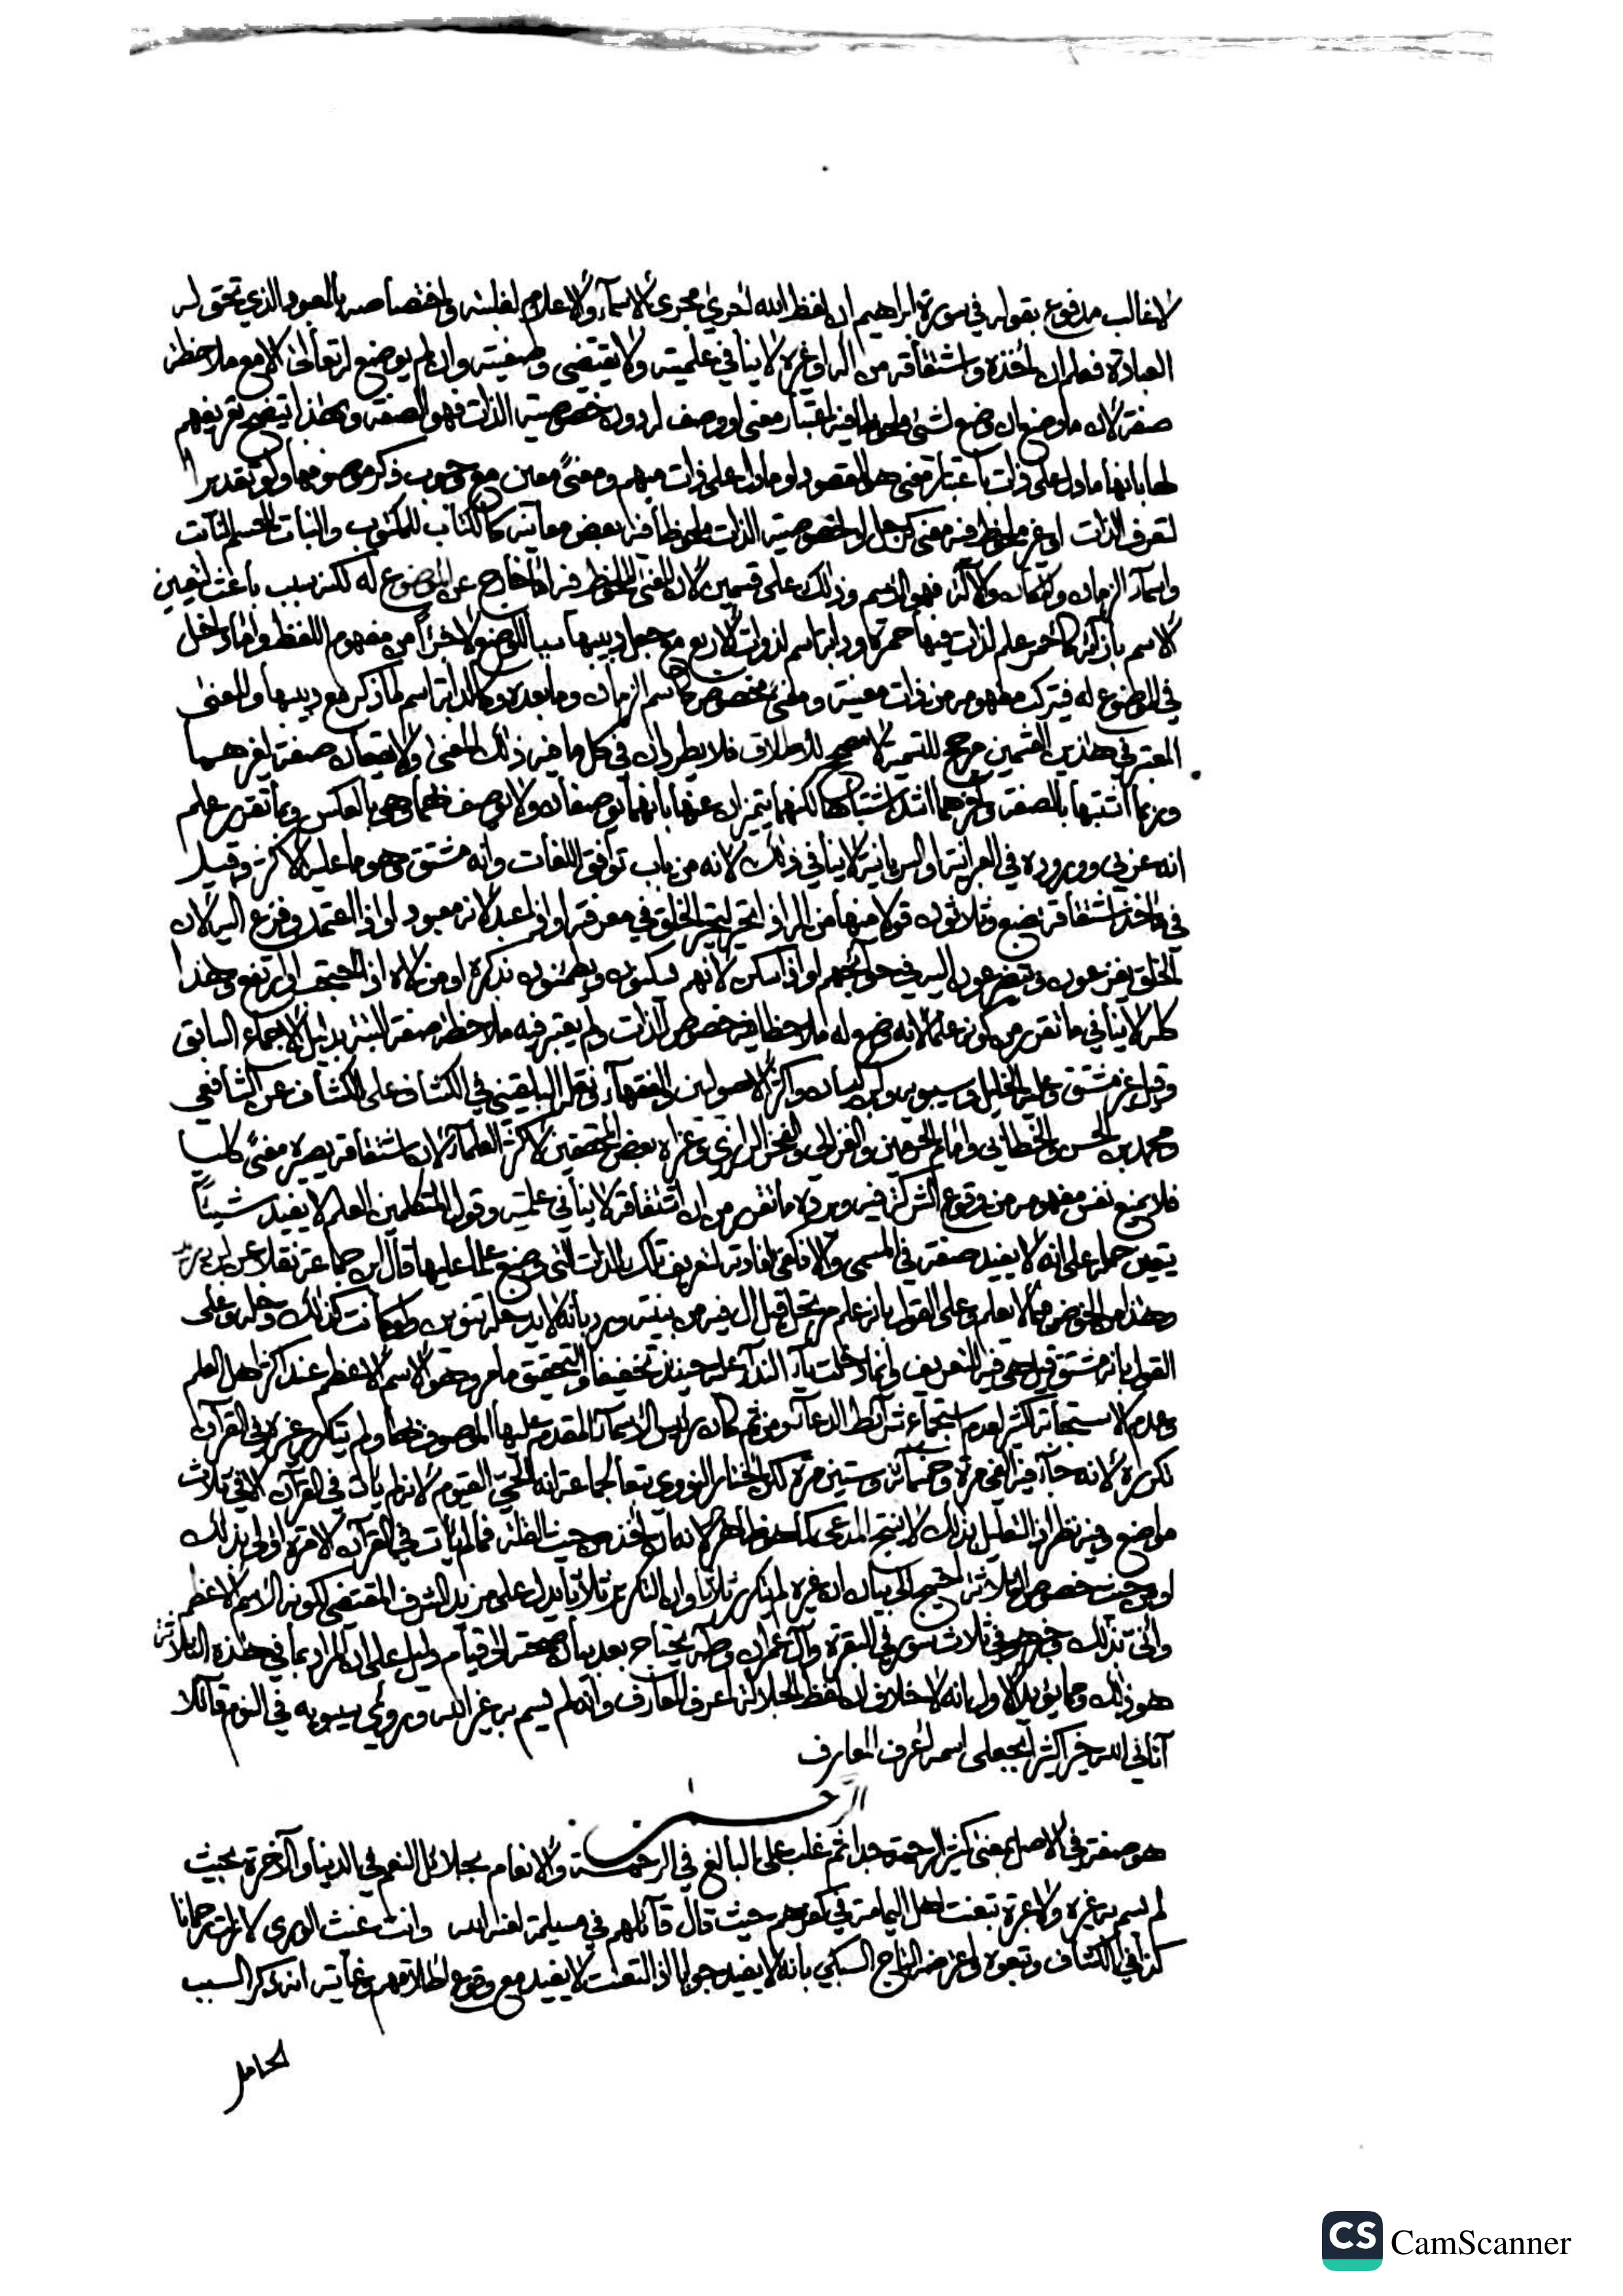 لا غالب مدفوع بقوله في سورة ابراهيم ان لفظ الله اجري مجرى الاسماء والاعلام لغلبته واختصاصه بالمعبود الذي تحق له
العبادة فعلم ان اخذه واشتقاقه من اله او غيره لا ينافي علميته ولا يقتضي وصفيته وان لم يوضع له تعالى الا مع ملاحظة
صفة لان ما وضع ان وضع لشئ ملحوظا فيه اعتبار معنى او وصف له دون خصوصية الذات فهو الصفة وبهذا يتضح تعريفهم
لها بانها ما دل على ذات باعتبار معنى هو المقصود او ما دل على ذات مبهم ومعنى معين مع وجوب ذكر موصوفها ولو تقديرا
لتعرف الذات او غير ملحوظ فيه معنى كرجل او لخصوصية الذات ملحوظا فيه بعض معانيه كالكتاب للمكتوب والنبات للجسم النابت
واسماء الزمان والمكان والآلة فهو الاسم وذلك على قسمين لان المعنى الملحوظ فيه اما خارج عن الموضوع له لكنه سبب باعث لتعيين
الاسم بازائه كاحمر علم لذات فيها حمرة وكدابة اسم لذوات الاربع مع جعل دبيبها سببا للوضع لا جزأ من مفهوم اللفظ واما داخل
في الموضوع له فيتركب مفهومه من ذات معينة ومعنى مخصوص كاسم الزمان وما بعده وكالدابة اسم لما ذكر مع دبيبها والمعنى
المعتبر في هذين القسمين مرجح للتسمية لا مصحح للاطلاق فلا يطردان في كل ما فيه ذلك المعنى ولا يقعان صفة لغيرهما
وربما اشتبها بالصفة واخرهما اشد اشتباها لكنهما يتميزان عنها بانهما يوصفان ولا يوصف بهما وهي بالعكس وبما تقرر علم
انه عربي ووروده في العبرانية او السريانية لا ينافي ذلك لانه من باب توافق اللغات وانه مشتق وهو ما عليه الاكثر وقيل
في ماخذ اشتقاقه بضع وثلاثون قولا منها من اله اذا تحير لتحير الخلق في معرفته او اذا عبد لانه معبود او اذا اعتمد وفزع اليه لان
الخلق يفزعون ويتضرعون اليه في حوائجهم او اذا سكن لانهم يسكنون ويطمئنون بذكره او من لاه اذا احتجب او ارتفع وهذا
كله لا ينافي ما تقرر من كونه علما لانه وضع له ملاحظا فيه خصوص الذات ولم يعتبر فيه ملاحظة صفة البتة بدليل الاجماع السابق
وقيل غير مشتق وعليه الخليل وسيبويه وابن كيسان واكثر الاصوليين والفقهاء ونقله البلقيني في الكشاف على الكشاف عن الشافعي
ومحمد بن الحسن والخطابي وامام الحرمين والغزالي والفخر الرازي وعزاه بعض المحققين لاكثر العلماء لان اشتقاقه يصيره معنى كليا
فلا يمنع نفس مفهومه من وقوع الشركة فيه ويرده ما تقرر من ان اشتقاقه لا ينافي علميته وقول المتكلمين العلم لا يفيد شيئا
يتعين حمله على انه لا يفيد صفة في المسمى والا فكفى افادته لتعريف تلك الذات التي وضع علما عليها قال ابن جماعة نقلا عن ابن دريد
وهذا من الخوض فيما لا يعلم وعلى القول بانه علم مرتجل قيل ال فيه من بنيته ورد بانه لا يدخله تنوين ولو كانت كذلك دخله وعلى
القول بانه مشتق قيل هي فيه للتعريف وانما دخلت ياء النداء عليه حينئذ تخفيفا والتحقيق ما مر وهو الاسم الاعظم عند اكثر اهل العلم
وعدم الاستجابة لكثير لعدم استجماع شرائط الدعاء ومن ثم كان رئيس الاسماء المقدم عليها الموصوف بها ولم يتكرر غيره في القرآن
تكراره لانه جاء فيه الفي مرة وخمسمائة وستين مرة لكن اختار النووي تبعا لجماعة انه الحي القيوم لانه لم يأت في القرآن الا في ثلاث
مواضع وفيه نظر اذ التعليل بذلك لا ينتج المدعى كما هو ظاهر لانه ان اخذ من حيث القلة فما لم يأت في القرآن الا مرة اولى بذلك
او من حيث خصوص الثلاثة احتيج الى بيان ان غيره لم يتكرر ثلاثا وان التكرر ثلاثا يدل على مزيد الشرف المقتضي لكونه الاسم الاعظم
وانى بذلك وخبر هو في ثلاث سور في البقرة وآل عمران وطه يحتاج بعد بيان صحته الى قيام دليل على ان المراد بما في هذه الثلاثة
هو ذلك ومما يؤيد الاول انه لا خلاف ان لفظ الجلالة اعرف المعارف وانه لم يسم به غير الله ورؤي سيبويه في النوم قائلا
آتاني الله خيرا كثيرا بجعلي اسمه اعرف المعارف
الرحمن
هو صفة في الاصل بمعنى كثير الرحمة جدا ثم غلب على البالغ في الرحمة والانعام بجلائل النعم في الدنيا والآخرة بحيث
لم يسم به غيره ولا عبرة بتعنت اهل اليمامة في كفرهم حيث قال قائلهم في مسيلمة لعنه الله وانت غيث الورى لا زلت رحمانا
كذا في الكشاف وتبعوه واعترضه التاج السبكي بانه لا يفيد جوابا اذ التعنت لا يفيد مع وقوع اطلاقهم وغايته انه ذكر السبب
الحامل
CS CamScanner